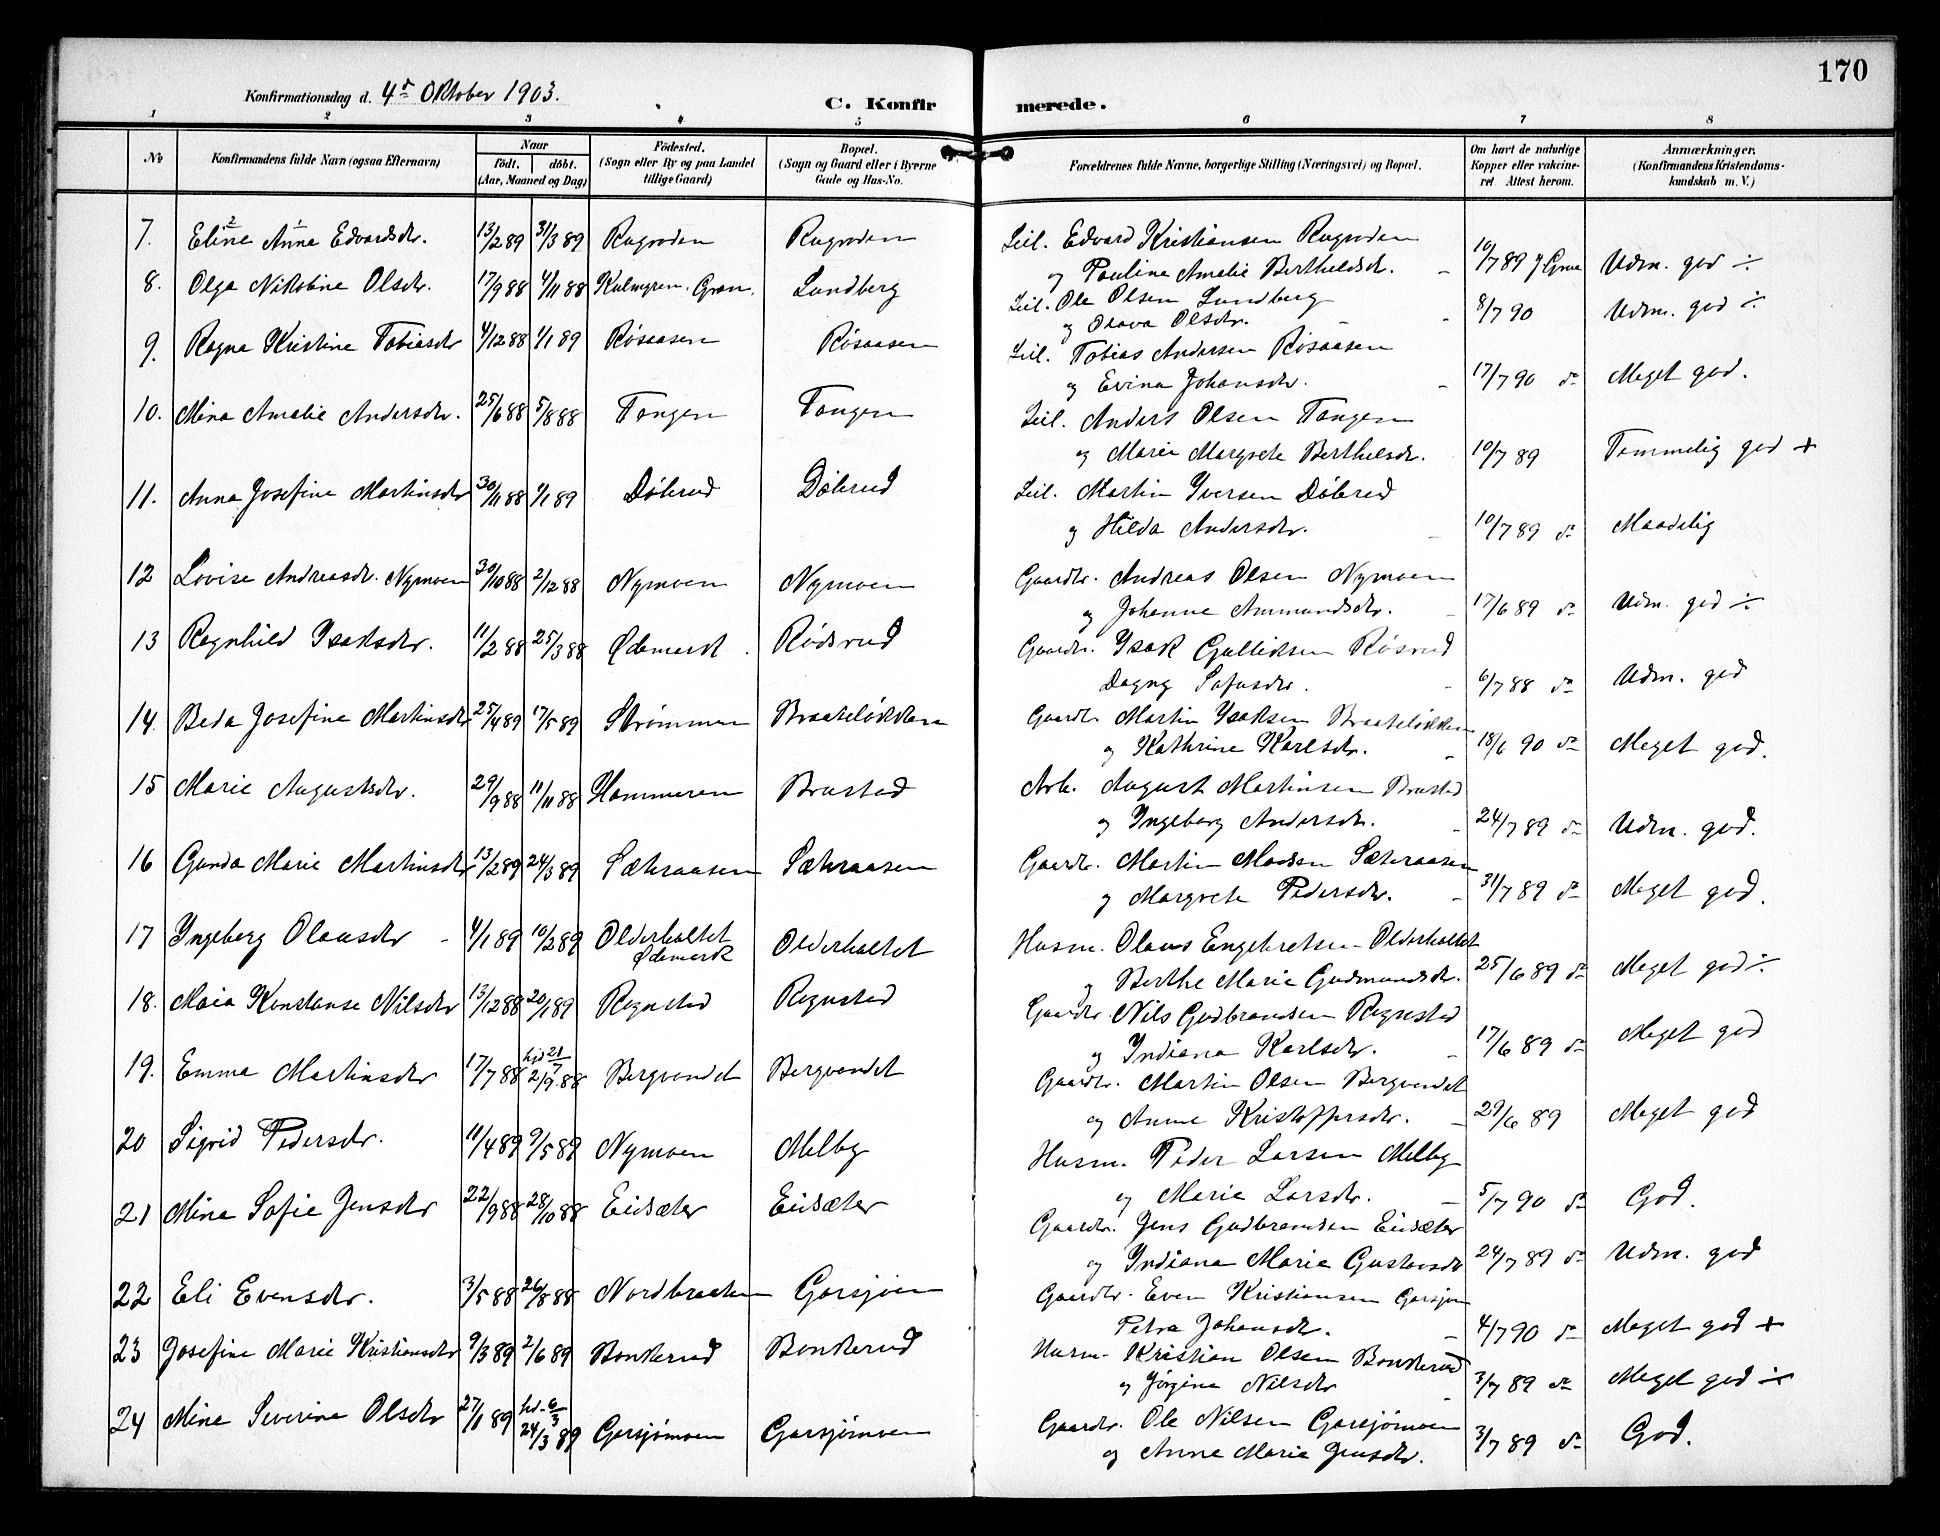 170
Konfirmationsdag d. 4de Oktober 1903.
C. Konfirmerede.
1 2 3 4 5 6 7 8
No
Konfirmandens fulde Navn (ogsaa Efternavn)
Naar
født. døbt.
(Aar, Maaned og Dag)
Fødested.
(Sogn eller By og paa Landet
tillige Gaard)
Bopæl.
(Sogn og Gaard eller i Byerne
Gade og Hus-No.
Forældrenes fulde Navne, borgerlige Stilling (Næringsvei) og Bopæl.
Om havt de naturlige
Kopper eller vakcine-
ret Attest herom.
Anmærkninger.
(Konfirmandens Kristendoms-
kundskab m. V.)
7. Eline Anna Edvardsdtr. 13/2 89 31/3 89 Rugroden Rugroden Leil. Edvard Kristiansen Rugroden
og Pauline Amelie Bertheldsdtr. 10/7 89 J Grue Udm. god ÷
8. Olga Nikoline Olsdtr. 17/9 88 4/11 88 Kulmyren, Gran. Lundberg Leil. Ole Olsen Lundberg
og Olava Olsdtr. 8/7 90 Udm. god ÷
9. Ragna Kristine Tobiasdtr 4/12 88 1/1 89 Røsaasen Røsaasen Leil. Tobias Andersen Røsaasen
og Evina Johansdtr. 17/7 90 do Meget god.
10. Mina Amelie Andersdtr. 25/6 88 5/8 88 Tangen Tangen Leil. Anders Olsen Tangen
og Marie Margrete Berthelsdtr. 10/7 89 Temmelig god +
11. Anna Josefine Martinsdtr 30/11 88 1/1 89 Døbrud Døbrud Leil. Martin Iversen Døbrud
og Hilda Andersdtr. 10/7 89 do Maadelig
12 Lovise Andreasdtr. Nymoen 30/10 88 2/12 88 Nymoen Nymoen Gaardbr. Andreas Olsen Nymoen
og Johanne Ammundsdtr. 17/6 89 do Udm. god ÷
13 Ragnhild Isaksdtr. 11/2 88 25/3 88 Ødemark Rødsrud Gaardbr. Isak Gullicksen Røsrud
Dagny Sofusdtr. 6/7 88 do Udm. god
14. Beda Josefine Martinsdtr 25/4 89 17/5 89 Strømmen Braateløkken Gaardbr. Martin Isaksen Braateløkken
og Kathrine Karlsdtr. 18/6 90 do Meget god.
15 Marie Augustsdtr. 29/9 88 11/11 88 Hammeren Brustad Arb. August Martinsen Brustad
og Ingeborg Andersdtr. 24/7 89 do Udm. god.
16 Gunda Marie Martinsdtr 13/2 89 24/3 89 Sætraasen Sætraasen Gaardbr. Martin Madsen Sætraasen
og Margrete Pedersdtr. 31/7 89 do Meget god.
17 Ingeborg Olausdtr 4/1 89 10/2 89 Olderholtet Ødemark Olderholtet Husm. Olaus Engebretsen Olderholtet
og Berthe Marie Gudmundsdtr. 25/6 89 do Meget god ÷
18. Maia Konstanse Nilsdtr 13/12 88 20/1 89 Rognstad Rognstad Gaardbr. Nils Gudbrandsen Rognstad
og Indiana Karlsdtr. 17/6 89 do Meget god
19. Emma Martinsdtr 17/7 88 hjd 21/7 2/9 88 Bergvendet Bergvendet Gaardbr. Martin Olsen Bergvendet
og Anne Kristoffersdtr. 29/6 89 Meget god
20 Sigrid Pedersdtr. 11/4 89 9/5 89 Nymoen Melby Husm. Peder Larsen Melby
og Marie Larsdtr. 5/7 90 do God.
21 Mina Sofie Jensdtr 22/9 88 28/10 88 Eidsæter Eidsæter Gaardbr. Jens Gudbrandsen Eidsæter
og Indiana Marie Gustavsdtr 24/7 89 do Udm. god
22 Eli Evensdtr. 3/5 88 26/8 88 Nordbraaten Garsjøen Gaardbr. Even Kristiansen Garsjøen
Petra Johansdtr. 4/7 90 do Meget god +
23 Josefine Marie Kristiansdtr 9/3 89 2/6 89 Bonkerud Bonkerud Husm. Kristian Olsen Bonkerud
og Jørgine Nilsdtr 3/7 89 do Meget god ÷
24 Mina Severine Olsdtr 27/1 89 hd. 6/3 24/3 89 Garsjømoen Garsjømoen Gaardbr. Ole Nilsen Garsjømoen
og Anne Marie Jensdtr. 3/7 89 do God.